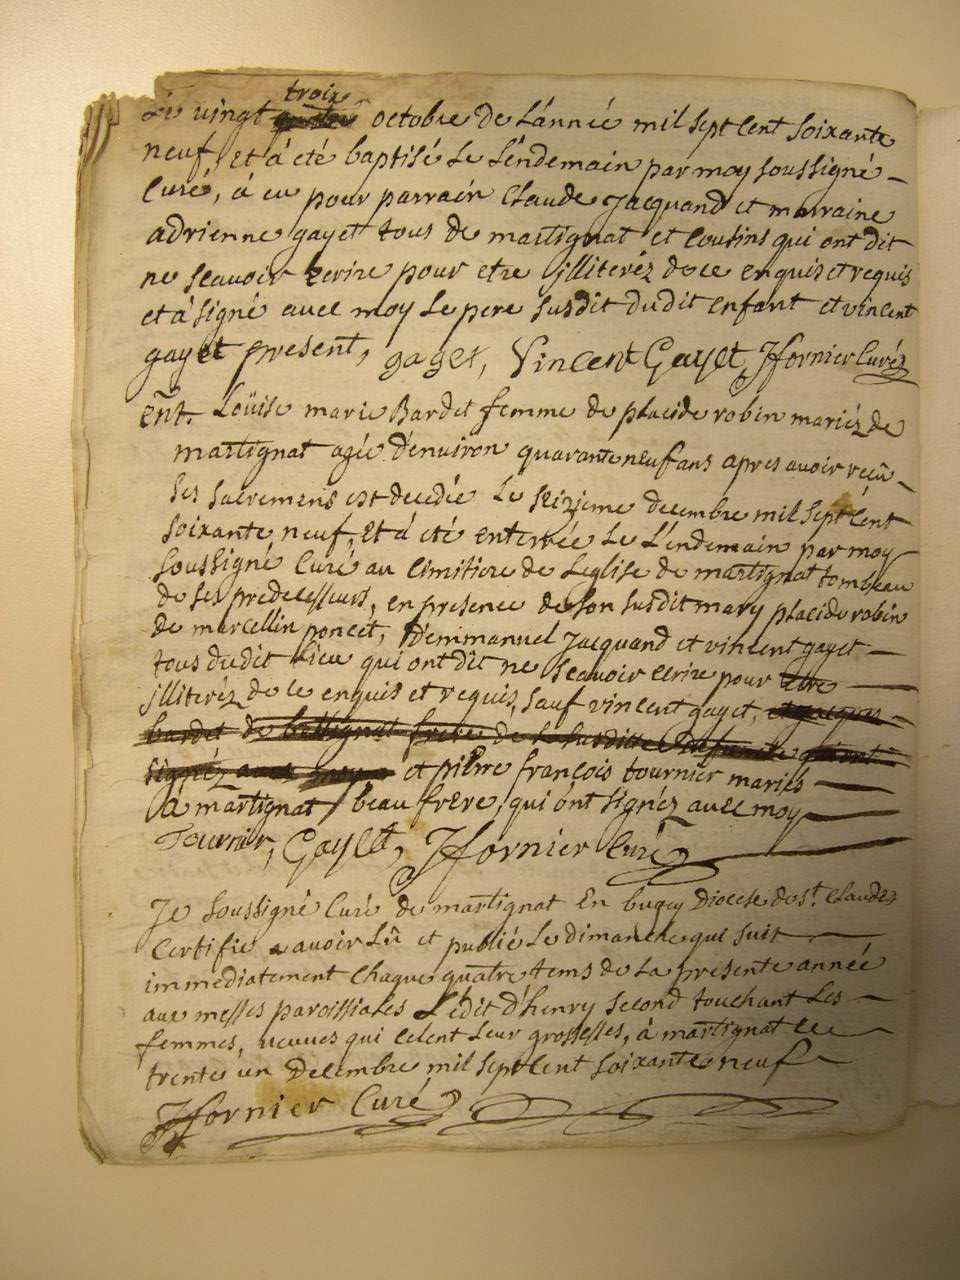 troix
Le vingt octobre de L'année mil sept cent soixante
neuf, et à eté baptisé Le L'endemain par moy soussigné –
Curé, à eu pour parrain Claude Jacquand et marraine
adrienne gayet tous de martignat et cousins qui ont dit
ne sçavoir ecrire pour etre illiteréz de ce enquis et requis
et a signé avec moy Le pere susdit dudit enfant et vincent
gayet present, gaget, Vincent Gayet, J fornier Curé
ent. Loüise marie Bardet femme de placide robin mariéz de
martignat agée d'environ quarante neuf ans apres avoir reçû –
ses sacremens est decedée Le seizieme decembre mil sept cent
soixante neuf, et à eté enterrée Le L'endemain par moy
soussigné Curé au cimitiere de L'eglise de martignat tombeau
de ses predecesseurs, en presence de son susdit mary placide robin
de marcellin poncet, d'emmanuel Jacquand et vincent gayet –
tous dudit Lieu qui ont dit ne sçavoir ecrire pour etre –
illiteréz de ce enquis et requis, sauf vincent gayet,
bardet de frere de la susditte
signéz avec moy et pierre françois tournier mariés –
a martignat beau frere, qui ont signéz avec moy
Tournier, Gayet, J fornier Curé
Je soussigné Curé de martignat en bugey Diocese de St. Claude
Certifie avoir Lû et publié Le dimanche qui suit –
immediatement Chaque quatre tems de La presente année
aux messes paroissiales L'edit d'henry second touchant Les –
femmes, veuves qui celent Leur grossesses, à martignat ce –
trente un Decembre mil sept cent soixante neuf –
J fornier Curé